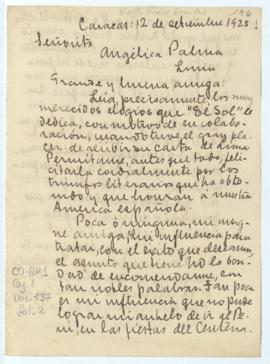 196
Caracas: 12 de setiembre 1925
Señorita
Angélica Palma
Lima
Grande y buena amiga:
Leía, precisamente, los muy
merecidos elogios que "El Sol" le
dedica, con motivo de su colabo-
ración, cuando tuve el gran pla-
cer de recibir su carta de Lima
Permítame, antes que todo, feli-
citarla cordialmente por los
triunfos literarios que ha obte-
nido y que honran a nuestra
América española.
Poca o ninguna, mi
amiga, mi influencia para
tratar, con el éxito que deseamos,
el asunto que tiene Ud. la bon-
dad de encomendarme, con
tan nobles palabras. Tan poca
es mi influencia que no pude
lograr mi anhelo de ir al Pe-
rú, en las fiestas del Centena.
CO-AP1
Cj. 1
Doc. 137
Fol. 2